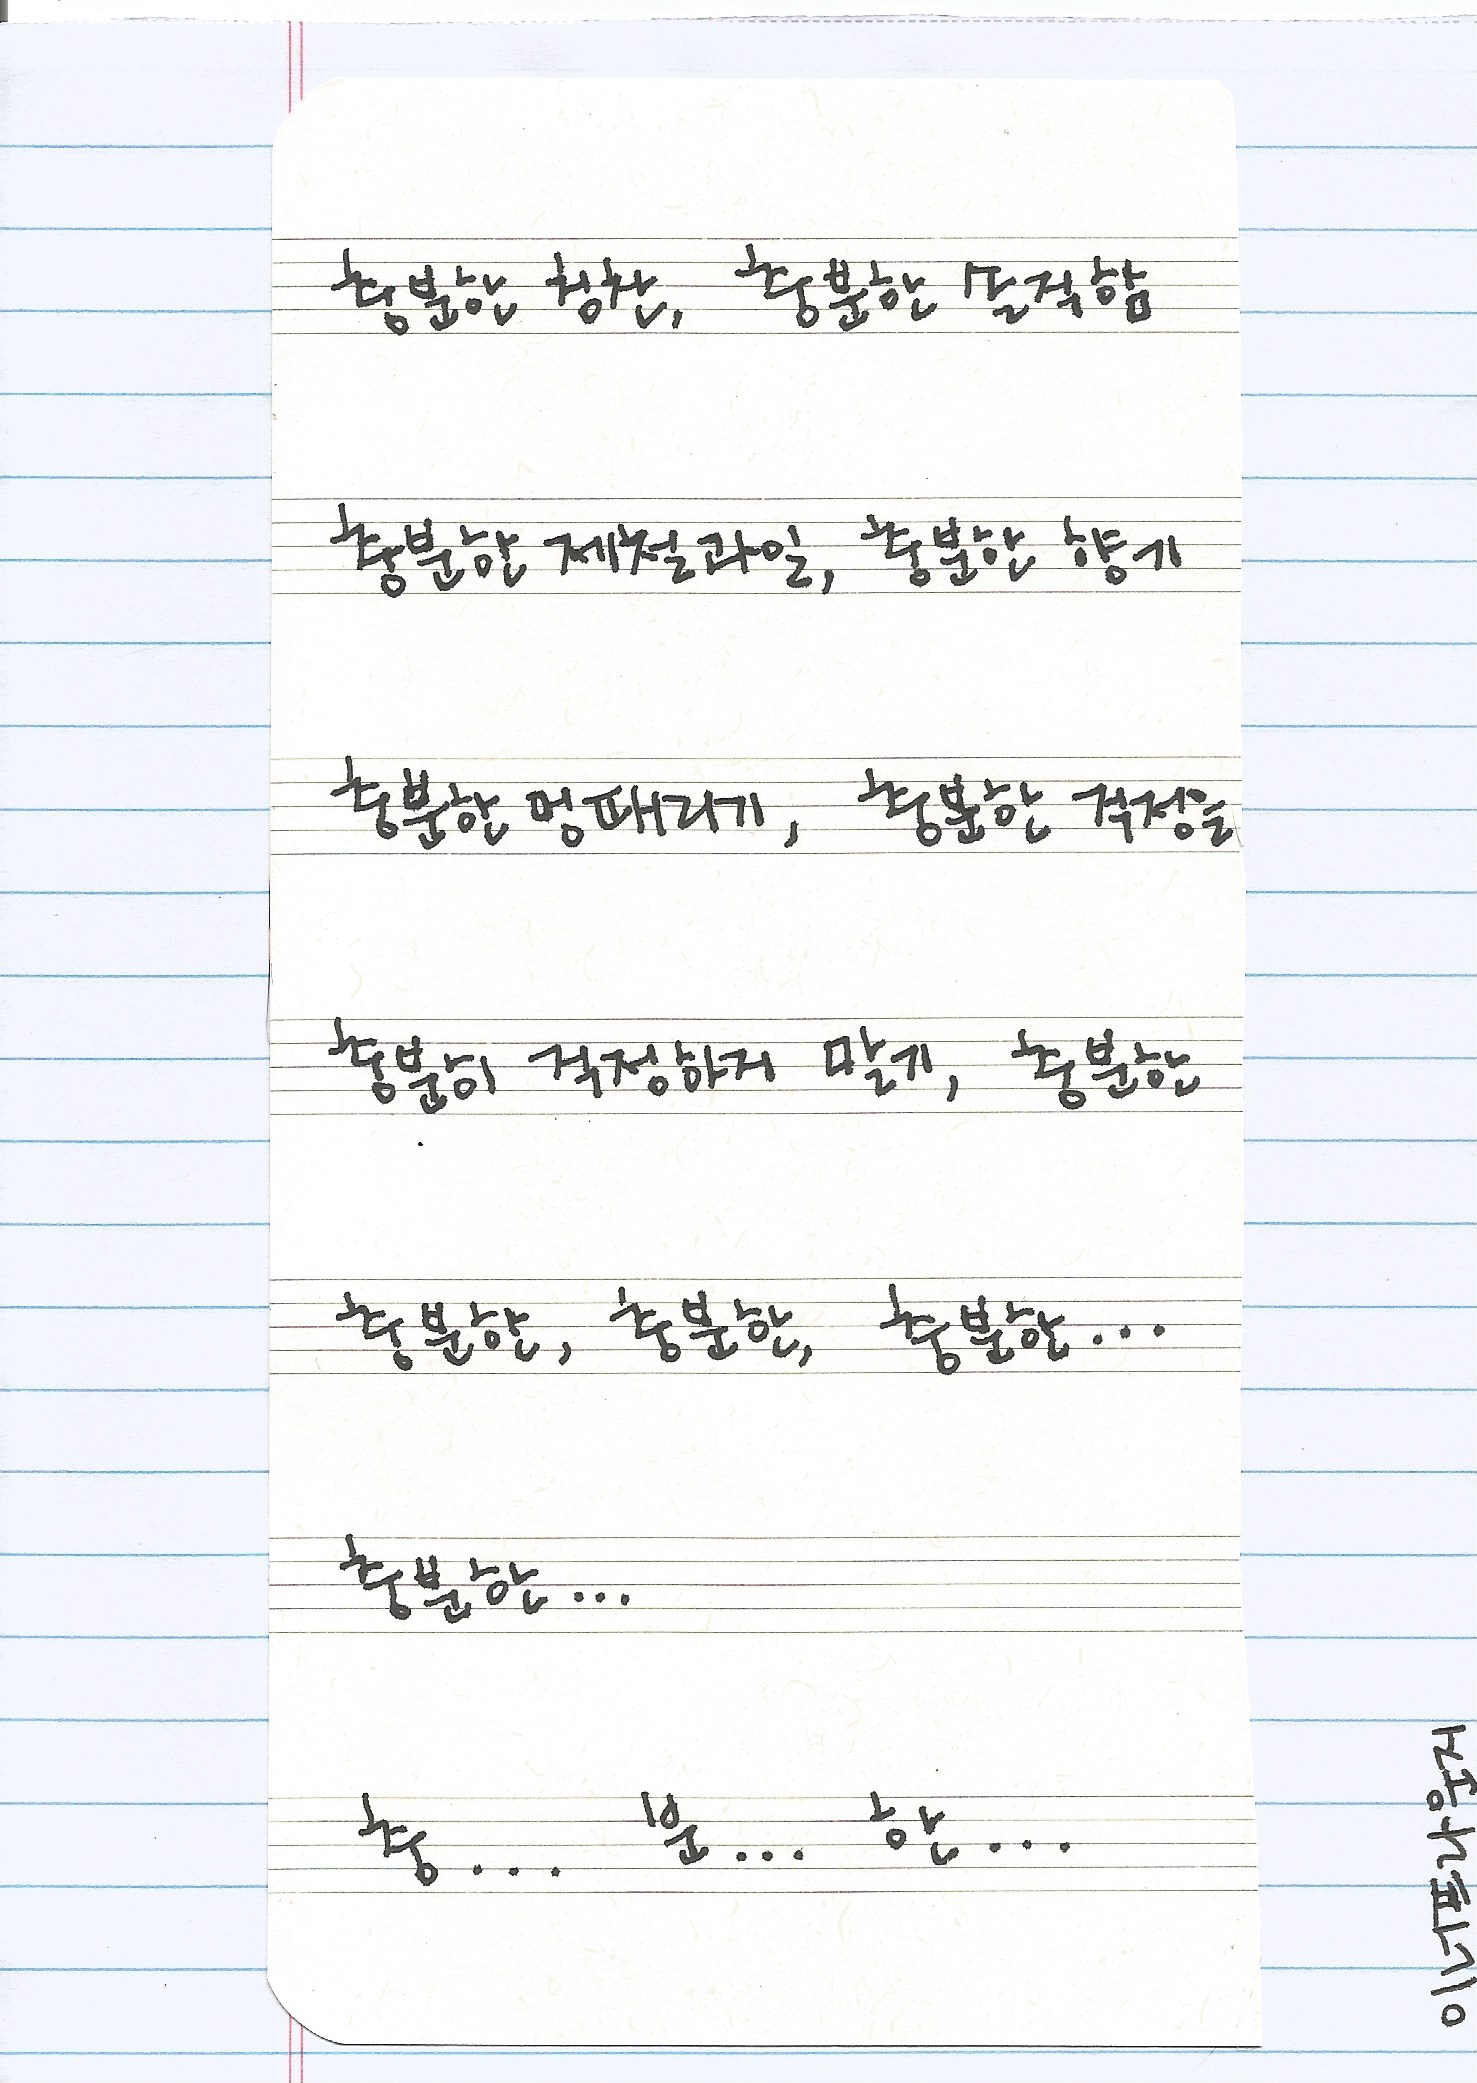 충분한 칭찬, 충분한 솔직함
충분한 제철과일, 충분한 향기
충분한 멍때리기, 충분한 걱정들
충분히 걱정하지 말기, 충분한
충분한, 충분한, 충분한...
충분한...
충... 분... 한...